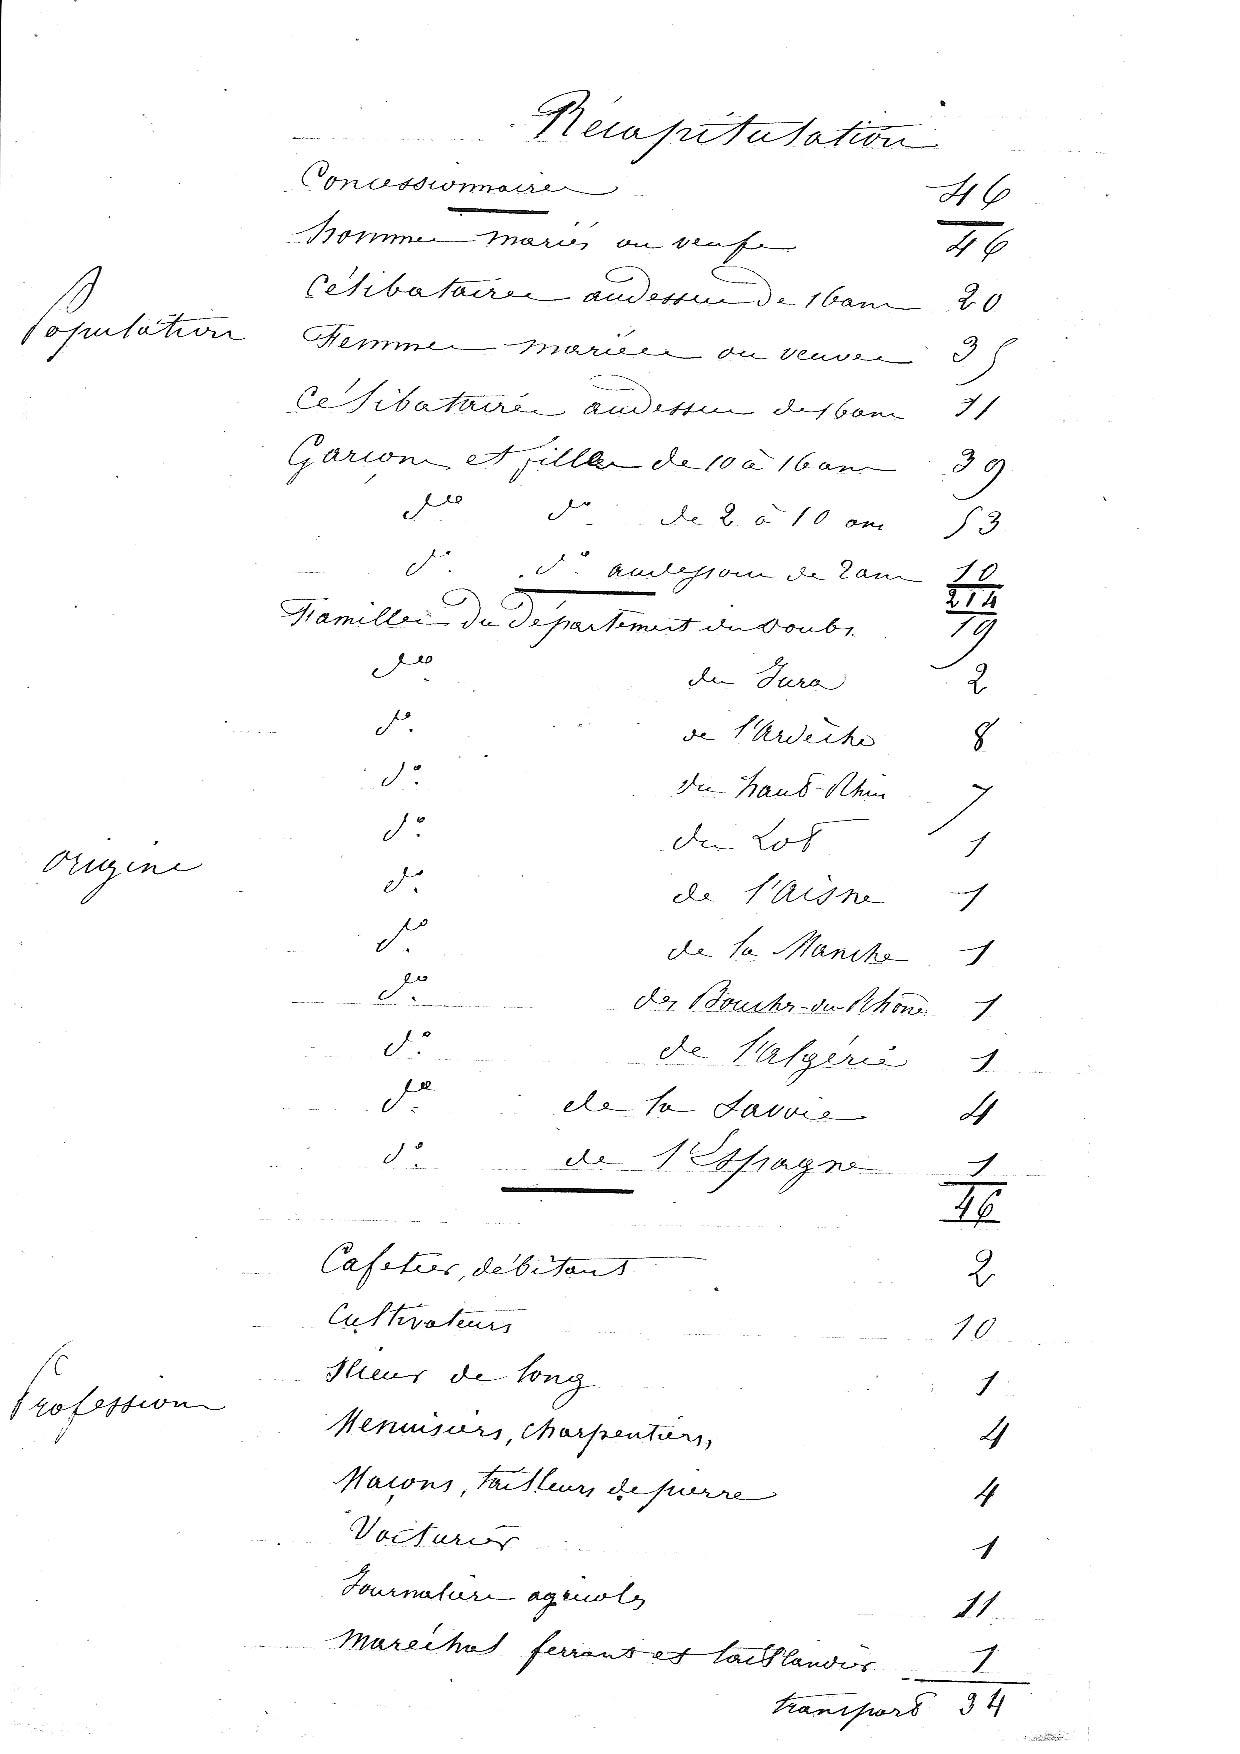 Récapitulation
Concessionnaires 46
Population
hommes mariés ou veufs 46
Célibataires audessus de 16 ans 20
Femmes mariées ou veuves 35
Célibataires audessus de 16 ans 11
Garçons et filles de 10 à 16 ans 39
do do de 2 à 10 ans 53
do do audessous de 2 ans 10
214
Origine
Familles du département du Doubs 19
do du Jura 2
do de l'Ardèche 8
do du haut-Rhin 7
do du Lot 1
do de l'Aisne 1
do de la Manche 1
do des Bouches-du-Rhône 1
do de l'Algérie 1
do de la Savoie 4
do de l'Espagne 1
46
Profession
Cafetiers, débitants 2
Cultivateurs 10
Scieur de long 1
Menuisiers, charpentiers, 4
Maçons, tailleurs de pierre 4
Voiturier 1
Journaliers agricoles 11
Maréchal ferrant et taillandier 1
transport 34